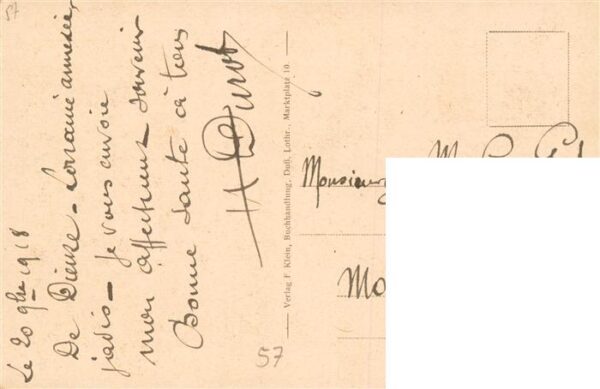 57
Le 20 9bre 1918
De Dieuze - Lorraine annexée,
jadis - je vous envoie
mon affectueux souvenir
Bonne santé à tous
H Durot
Verlag F Klein, Buchhandlung, Duß, Lothr., Marktplatz 10.
Monsieur
Mo
57